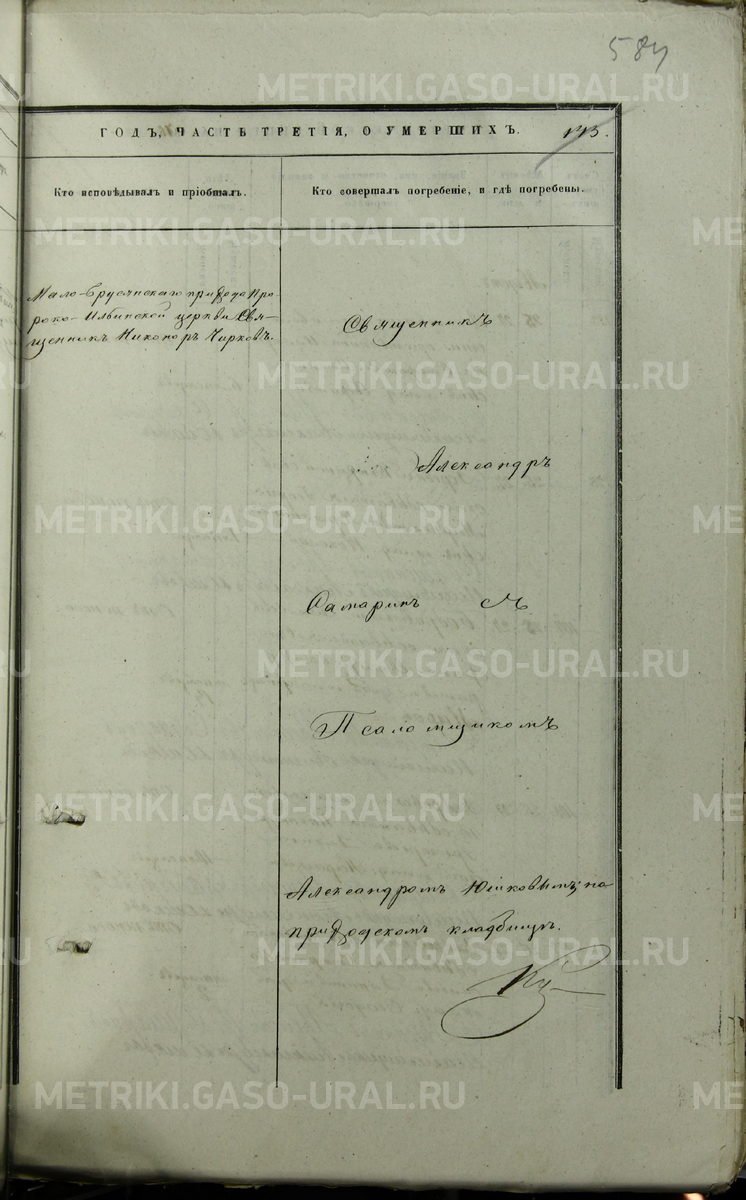 584
ГОДЪ, ЧАСТЬ ТРЕТІЯ, О УМЕРШИХЪ.
Кто исповѣдывалъ и пріобщалъ.
Кто совершалъ погребеніе, и гдѣ погребены.
Мало-Брусянскаго прихода Про-
роко-Ильинской церкви Свя-
щенникъ Никоноръ Чирковъ.
Священникъ
Александръ
Самаринъ съ
Псаломщикомъ
Александромъ Юшковымъ; на
приходскомъ кладбищѣ.
METRIKI.GASO-URAL.RU